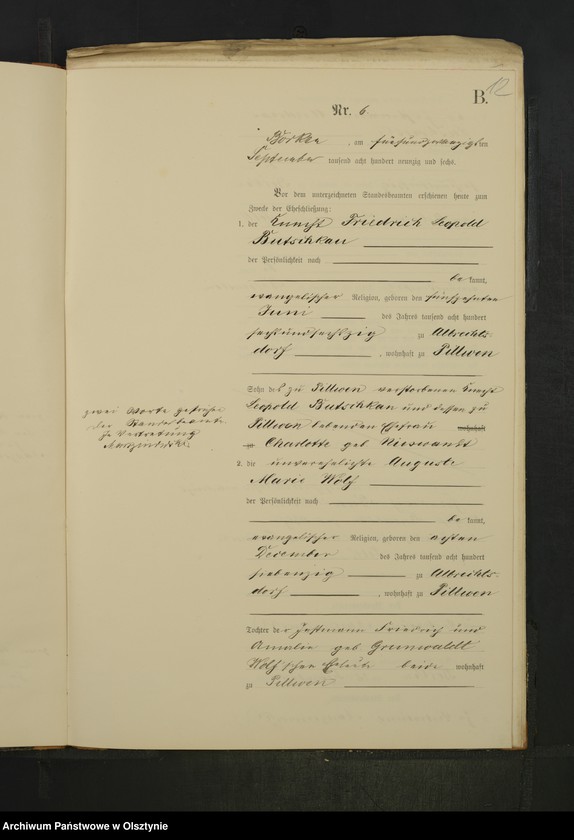 12
B.
Nr. 6
Borken, am fünfundzwanzigsten
September tausend acht hundert neunzig und sechs.
Vor dem unterzeichneten Standesbeamten erschienen heute zum
Zwecke der Eheschließung:
1. der Knecht Friedrich Leopold
Butschkau
der Persönlichkeit nach
bekannt,
evangelischer Religion, geboren den fünfzehnten
Juni des Jahres tausend acht hundert
sechsundsechszig zu Albrechts-
dorf, wohnhaft zu Pillwen
Sohn des zu Pillwen verstorbenen Knecht
Leopold Butschkau und dessen zu
Pillwen lebenden Ehefrau wohnhaft
zu Charlotte geb Nieswandt
zwei Worte gestrichen
der Standesbeamte
In Vertretung
2. die unverehelichte Auguste
Marie Wölf
der Persönlichkeit nach
bekannt,
evangelischer Religion, geboren den ersten
Dezember des Jahres tausend acht hundert
siebenzig zu Albrechts-
dorf, wohnhaft zu Pillwen
Tochter der Instmann Friedrich und
Amalie geb Grunwaldt
Wölf'schen Eheleute beide wohnhaft
zu Pillwen
Archiwum Państwowe w Olsztynie